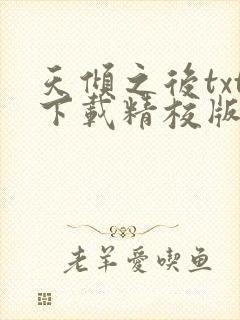 天傾之後txt
下載精校版
老羊愛喫鱼